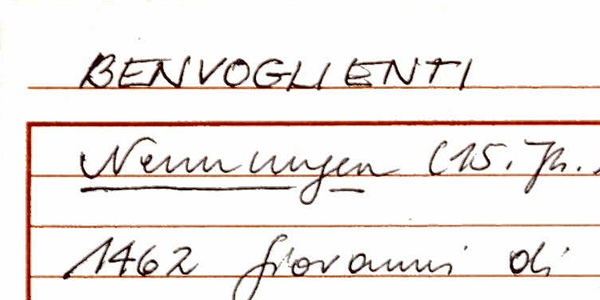 BENVOGLIENTI
Nennungen (15. Jh.)
1462 Giovanni di